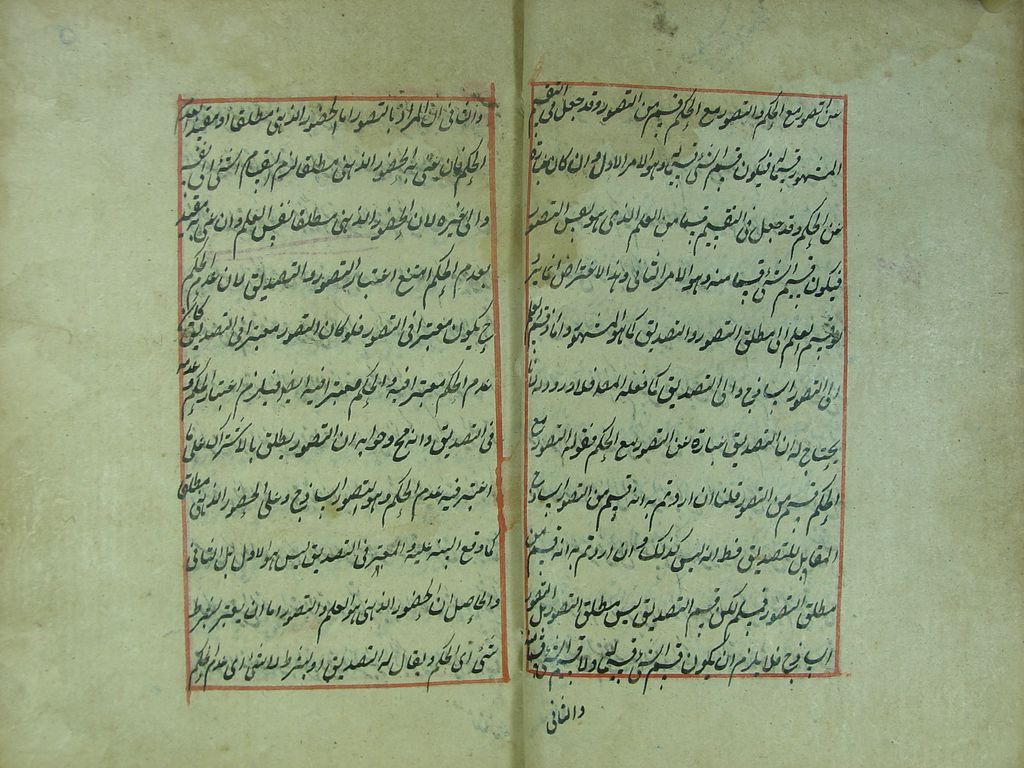 عن التصور مع الحكم والتصور مع الحكم قسم من التصور وقد جعل في التقسيم
المشهور قسيما له فيكون قسم الشئ قسيما له وهو الامر الاول وان كان عبارة
عن الحكم وقد جعل في التقسيم قسما من العلم الذي هو نفس التصور
فيكون قسيم الشئ قسما منه وهو الامر الثاني وهذا الاعتراض انما يرد
لو قسم العلم الى مطلق التصور والتصديق كما هو المشهور واما اذا قسم العلم
الى التصور الساذج والى التصديق كما فعله المصـ فلا ورود له لانا
ان التصديق عبارة عن التصور مع الحكم فقوله التصور مع
الحكم قسم من التصور قلنا ان اردتم به انه قسم من التصور الساذج
المقابل للتصديق فظ انه ليس كذلك وان اردتم به انه قسم من
مطلق التصور فمسلم لكن قسيم التصديق ليس مطلق التصور بل التصور
الساذج فلا يلزم ان يكون قسم الشئ قسيما له ولا قسيم الشئ قسما منه
والثاني
والثاني ان المراد بالتصور اما الحضور الذهني مطلقا او مقيد بعدم
الحكم فان عني به الحضور الذهني مطلقا لزم انقسام الشئ الى نفسه
والى غيره لان الحضور الذهني مطلقا نفس العلم وان عني به مقيد
بعدم الحكم امتنع اعتبار التصور في التصديق لان عدم الحكم
ح يكون معتبرا في التصور فلو كان التصور معتبرا في التصديق كان
عدم الحكم معتبرا فيه والحكم معتبر فيه ايضا فيلزم اعتبار الحكم وعدمه
في التصديق وانه مح وجوابه ان التصور يطلق بالاشتراك على ما
اعتبر فيه عدم الحكم وهو التصور الساذج وعلى الحضور الذهني مطلقا
كما وقع التنبيه عليه والمعتبر في التصديق ليس هو الاول بل الثاني
والحاصل ان الحضور الذهني هو العلم والتصور اما ان يعتبر بشرط
شئ اي الحكم ويقال له التصديق او بشرط لا شئ اي عدم الحكم